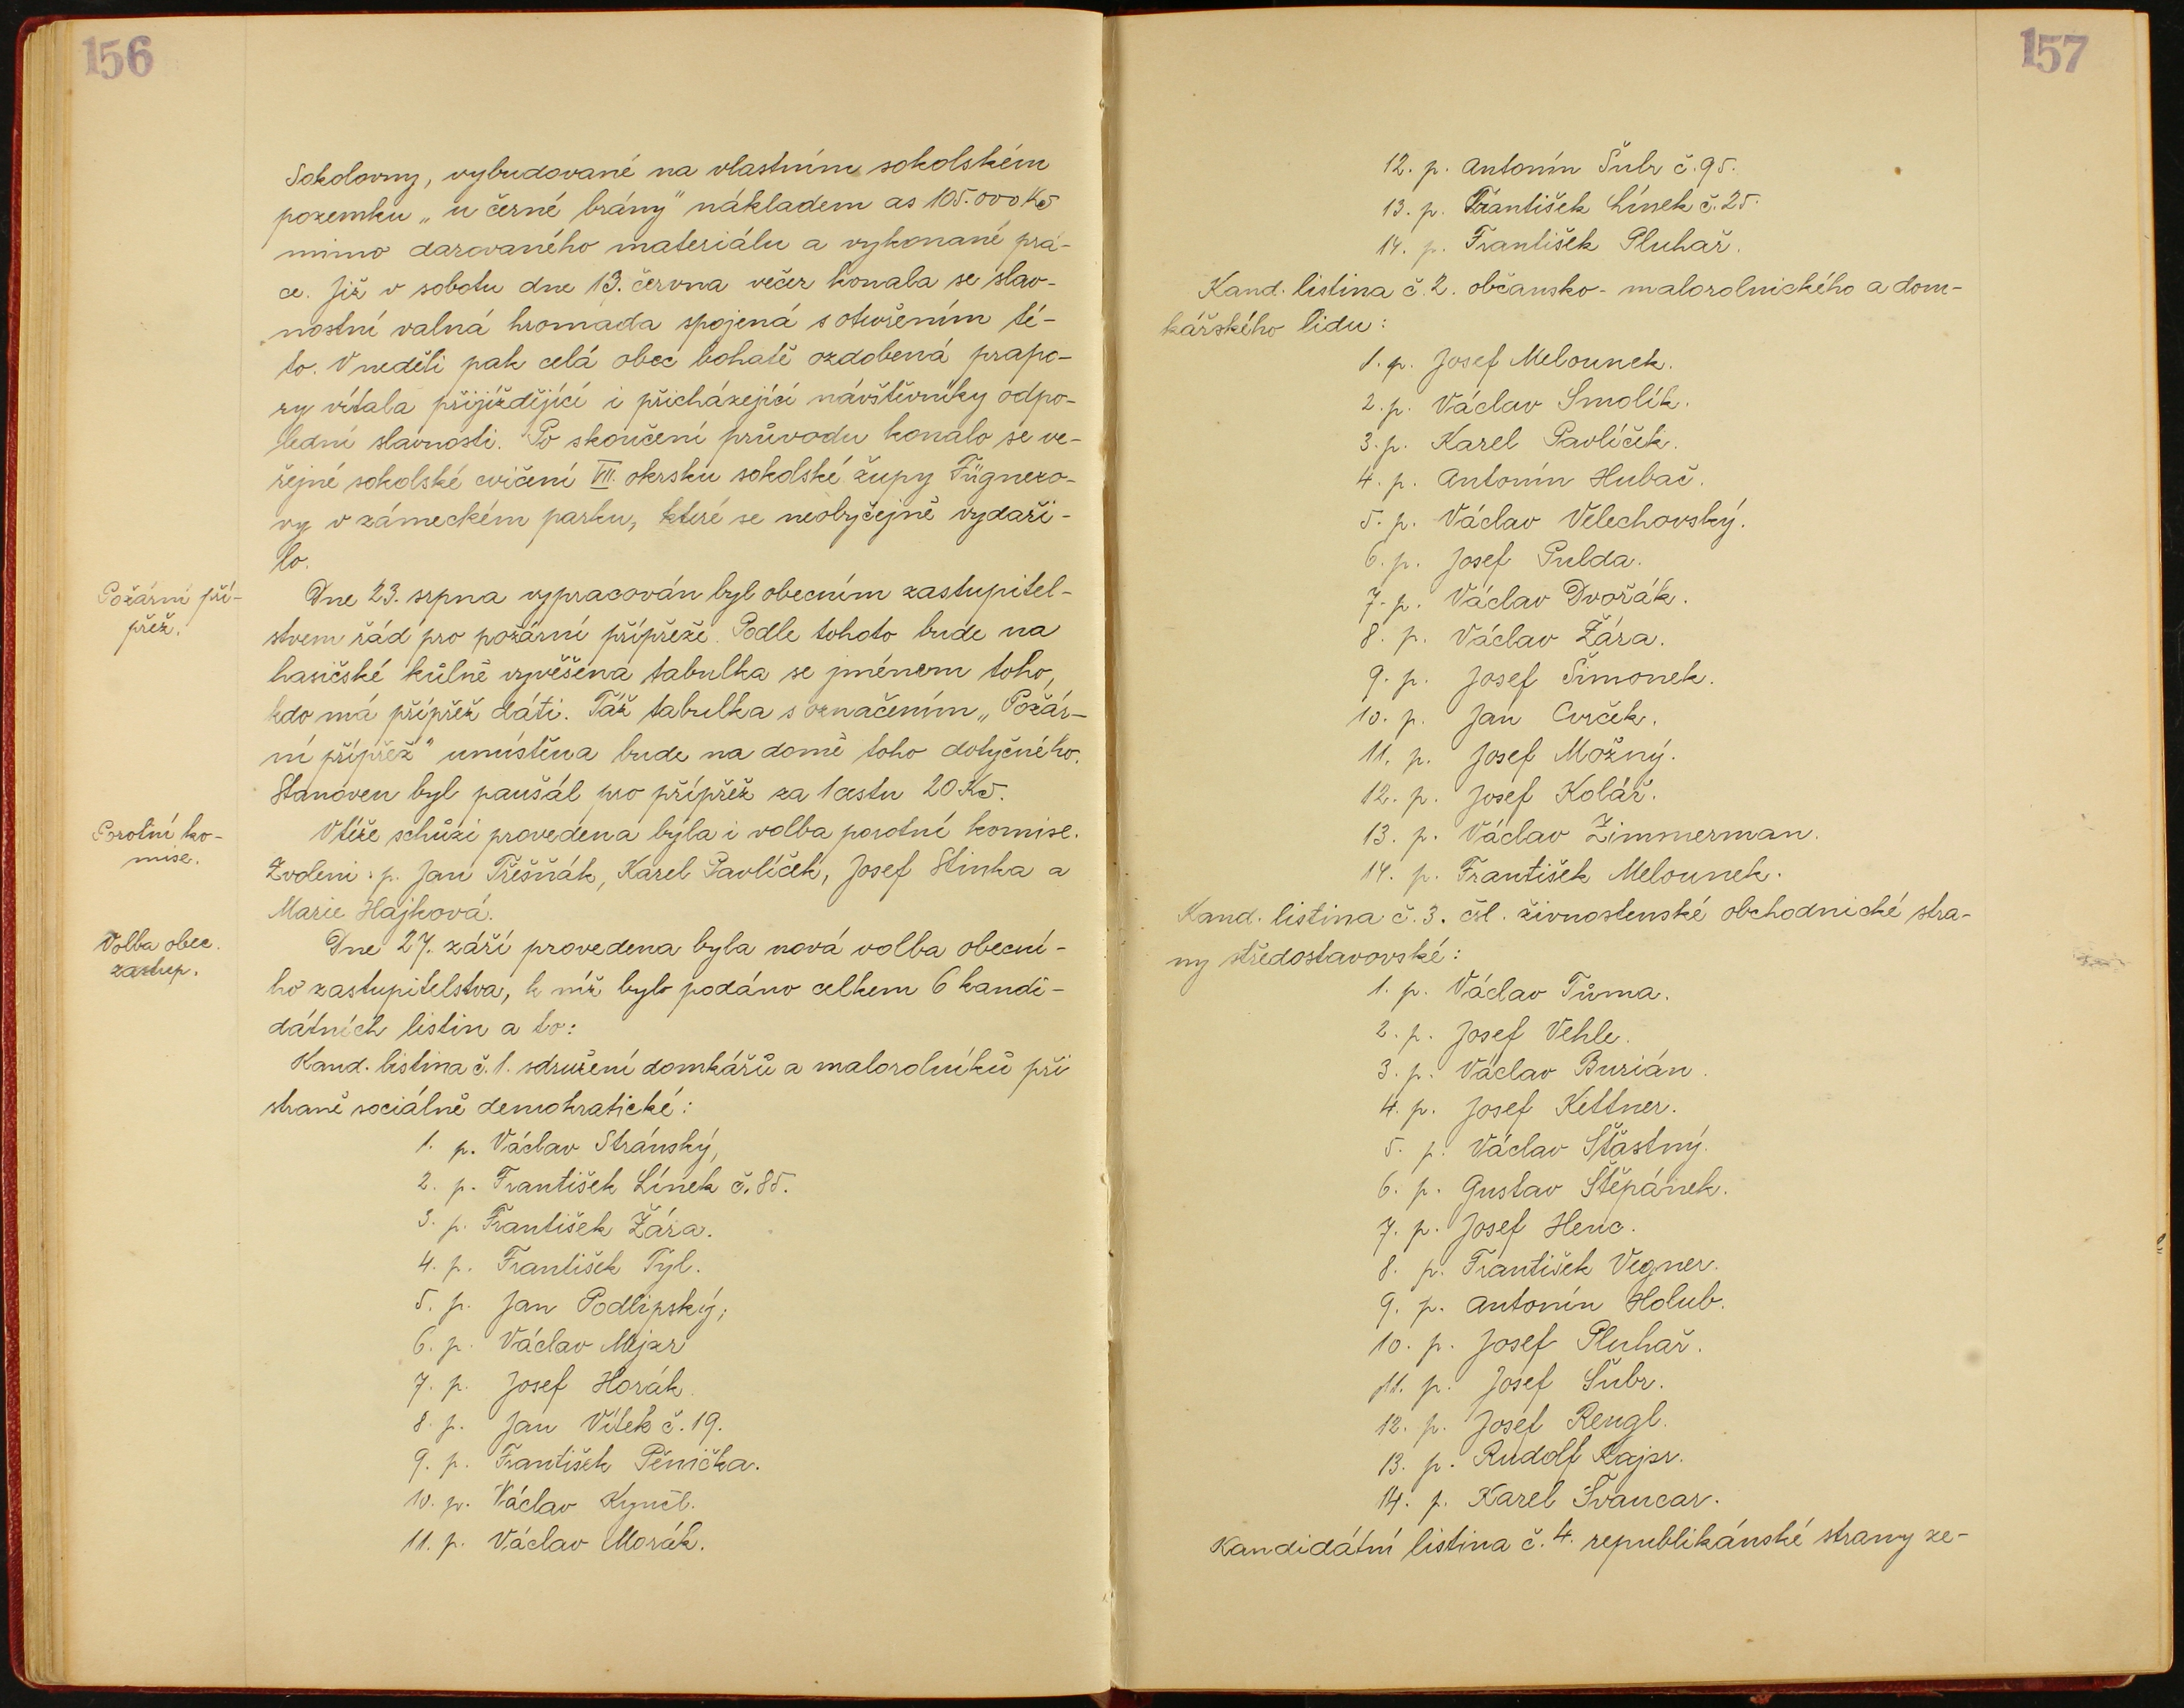 156
Sokolovny, vybudované na vlastním sokolském
pozemku „u černé brány" nákladem as 105.000 Kč
mimo darovaného materiálu a vykonané prá-
ce. Již v sobotu dne 13. června večer konala se slav-
nostní valná hromada spojená s otevřením té-
to. V neděli pak celá obec bohatě ozdobená prapo-
ry vítala přijíždějící i přicházející návštěvníky odpo-
lední slavnosti. Po skončení průvodu konalo se ve-
řejné sokolské cvičení VII. okrsku sokolské župy Fügnero-
vy v zámeckém parku, které se neobyčejně vydaři-
lo.
Požární pří-
přež.
Dne 23. srpna vypracován byl obecním zastupitel-
stvem řád pro požární přípřeže. Podle tohoto bude na
hasičské kůlně vyvěšena tabulka se jménem toho,
kdo má přípřež dáti. Táž tabulka s označením „Požár-
ní přípřež" umístěna bude na domě toho dotyčného.
Stanoven byl paušál pro přípřež za 1 cestu 20 Kč.
Porotní ko-
mise.
V téže schůzi provedena byla i volba porotní komise.
Zvoleni: p. Jan Třešňák, Karel Pavlíček, Josef Stinka a
Marie Hájková.
Volba obec.
zastup.
Dne 27. září provedena byla nová volba obecní-
ho zastupitelstva, k níž bylo podáno celkem 6 kandi-
dátních listin a to:
Kand. listina č. 1. sdružení domkářů a malorolníků při
straně sociálně demokratické:
1. p. Václav Stránský,
2. p. František Línek č. 85.
3. p. František Žára.
4. p. František Týl.
5. p. Jan Podlipský,
6. p. Václav Mejzr
7. p. Josef Horák.
8. p. Jan Vítek č. 19.
9. p. František Pěnička.
10. p. Václav Kynčl.
11. p. Václav Morák.
157
12. p. Antonín Šubr č. 95.
13. p. František Línek č. 25.
14. p. František Pluhař.
Kand. listina č. 2. občansko-malorolnického a dom-
kářského lidu:
1. p. Josef Melounek.
2. p. Václav Smolík.
3. p. Karel Pavlíček.
4. p. Antonín Hubač.
5. p. Václav Velechovský.
6. p. Josef Pulda.
7. p. Václav Dvořák.
8. p. Václav Žára.
9. p. Josef Šimonek.
10. p. Jan Cvrček.
11. p. Josef Možný.
12. p. Josef Kolář.
13. p. Václav Zimmerman.
14. p. František Melounek.
Kand. listina č. 3. čsl. živnostenské obchodnické stra-
ny středostavovské:
1. p. Václav Tůma.
2. p. Josef Vehle.
3. p. Václav Burián.
4. p. Josef Kettner.
5. p. Václav Šťastný.
6. p. Gustav Štěpánek.
7. p. Josef Henc.
8. p. František Vegner.
9. p. Antonín Holub.
10. p. Josef Pluhař.
11. p. Josef Šubr.
12. p. Josef Rengl.
13. p. Rudolf Kajsr.
14. p. Karel Švancar.
Kandidátní listina č. 4. republikánské strany ze-